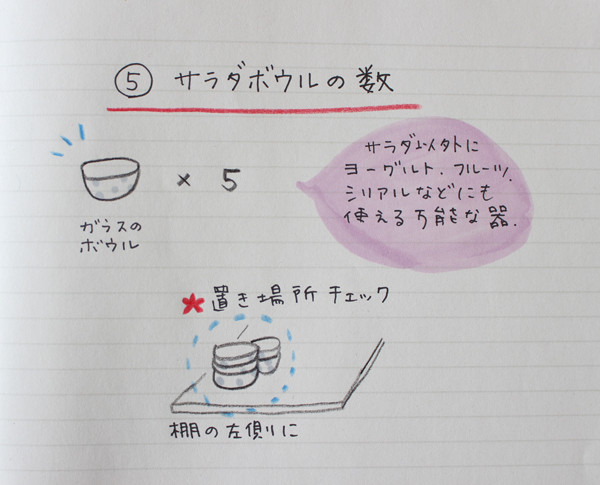 ⑤ サラダボウルの数
× 5
ガラスの
ボウル
サラダ以外に
ヨーグルト、フルーツ、
シリアルなどにも
使える万能な器.
★置き場所チェック
棚の左側りに